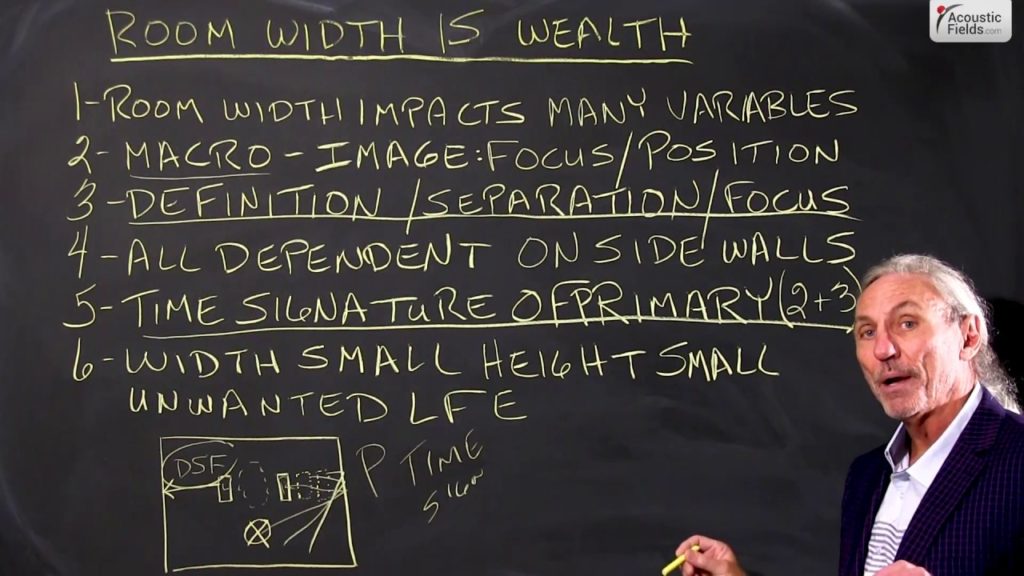 Acoustic
Fields.com
ROOM WIDTH IS WEALTH
1-ROOM WIDTH IMPACTS MANY VARIABLES
2-MACRO-IMAGE:FOCUS/POSITION
3-DEFINITION/SEPARATION/FOCUS
4-ALL DEPENDENT ON SIDE WALLS
5-TIME SIGNATURE OF PRIMARY(2+3)
6-WIDTH SMALL HEIGHT SMALL
UNWANTED LFE
DSF
P TIME